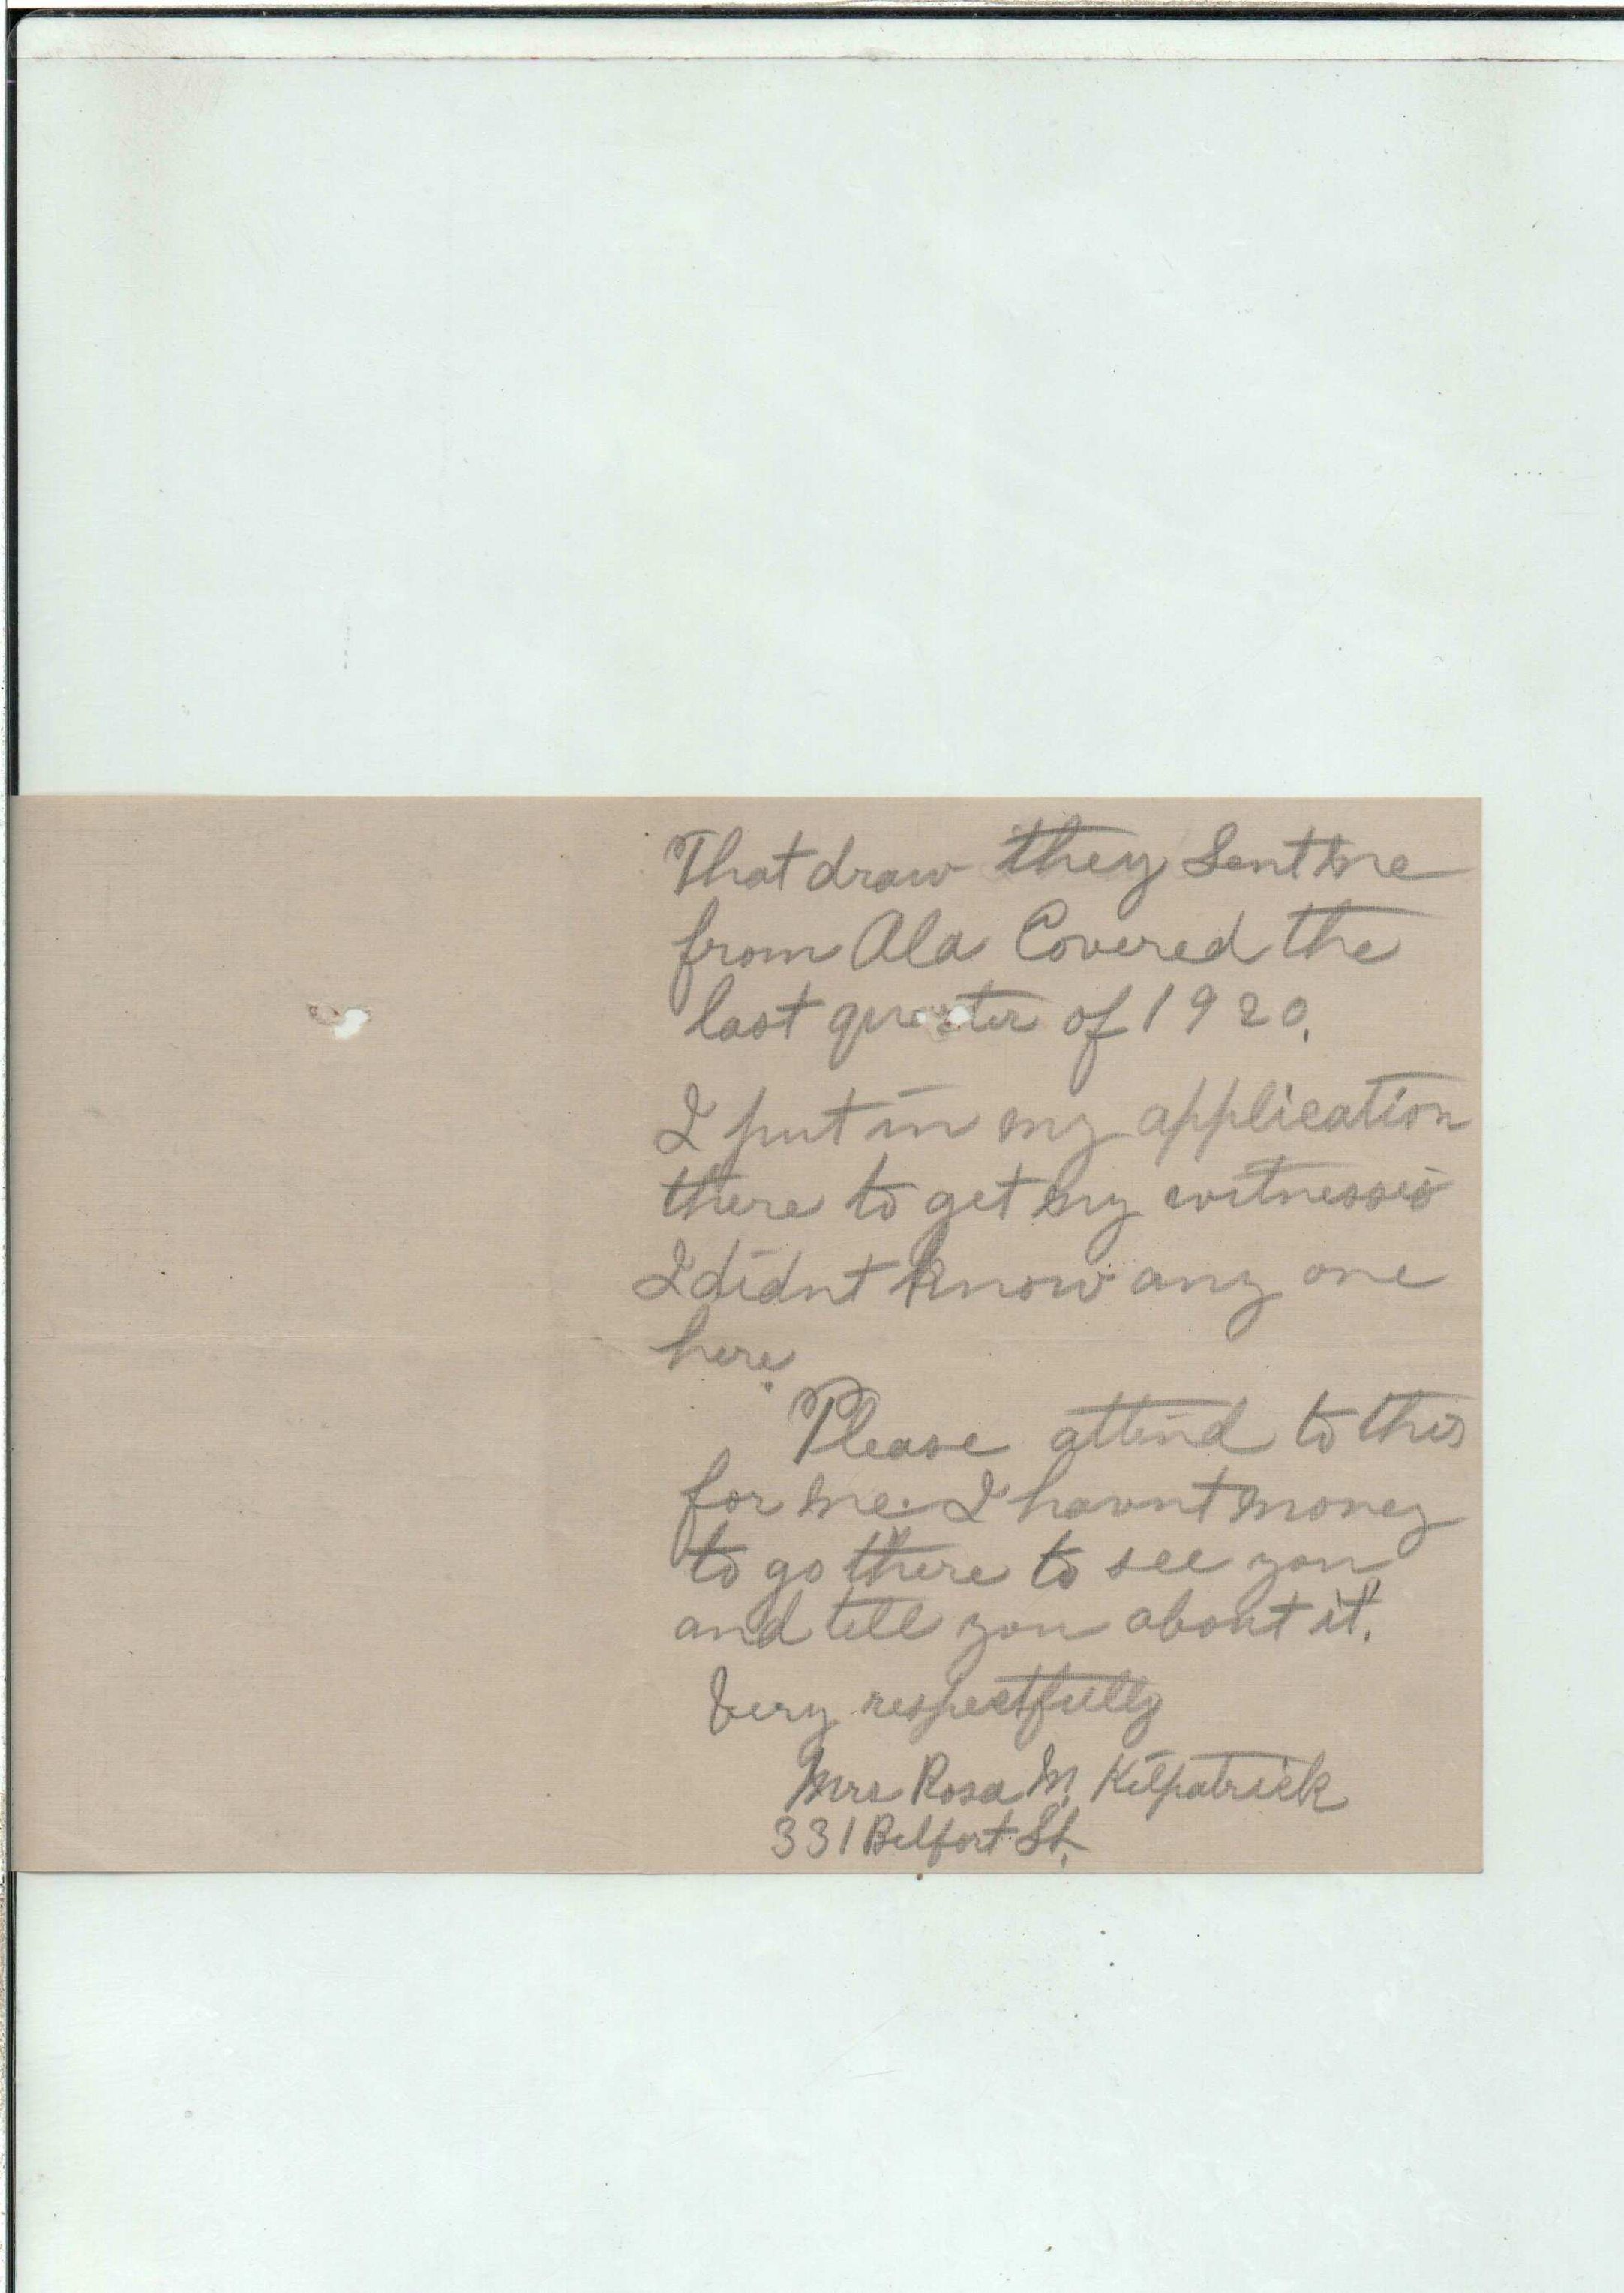 That draw they Sent me
from Ala Covered the
last quarter of 1920.
I put in my application
there to get my witnesses
I didnt know any one
here.
Please attend to this
for me. I havnt money
to go there to see you
and tell you about it.
Very respectfully
Mrs Rosa M. Kilpatrick
331 Belfort St.